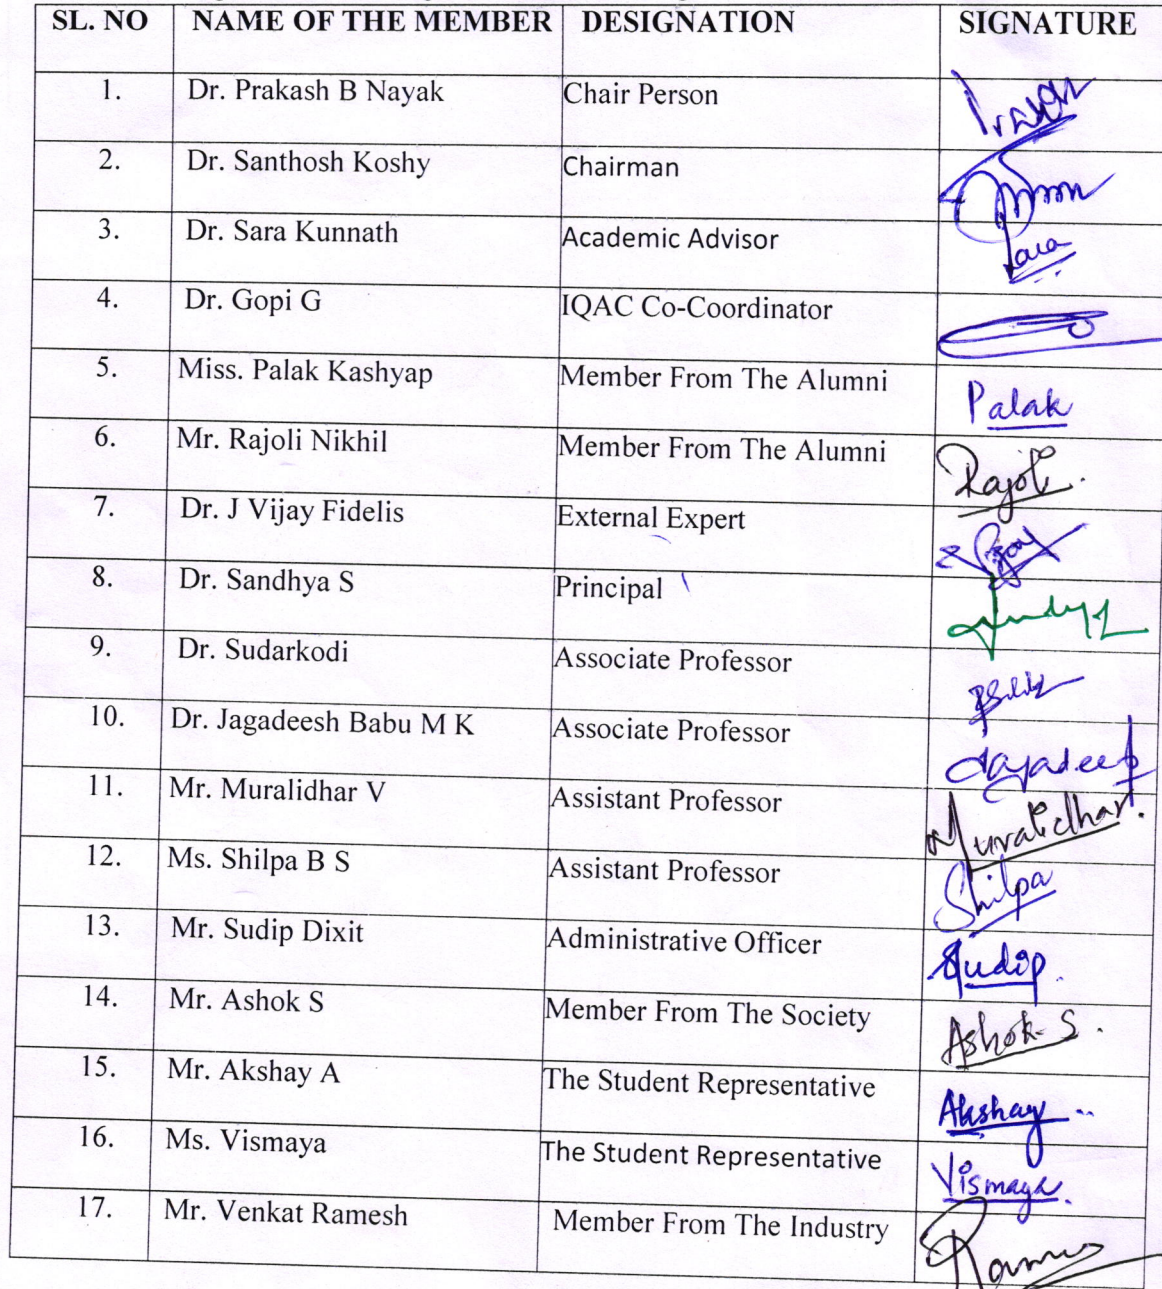 SL. NO NAME OF THE MEMBER DESIGNATION SIGNATURE
1. Dr. Prakash B Nayak Chair Person
2. Dr. Santhosh Koshy Chairman
3. Dr. Sara Kunnath Academic Advisor Sara
4. Dr. Gopi G IQAC Co-Coordinator
5. Miss. Palak Kashyap Member From The Alumni Palak
6. Mr. Rajoli Nikhil Member From The Alumni Rajoli.
7. Dr. J Vijay Fidelis External Expert
8. Dr. Sandhya S Principal
9. Dr. Sudarkodi Associate Professor
10. Dr. Jagadeesh Babu M K Associate Professor
11. Mr. Muralidhar V Assistant Professor Muralidhar.
12. Ms. Shilpa B S Assistant Professor Shilpa
13. Mr. Sudip Dixit Administrative Officer Sudip.
14. Mr. Ashok S Member From The Society Ashok-S.
15. Mr. Akshay A The Student Representative Akshay
16. Ms. Vismaya The Student Representative Vismaya.
17. Mr. Venkat Ramesh Member From The Industry